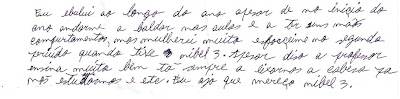 Eu ebului ao longo do ano apesar de no inicio do
ano andorme a baldar mas aulas e a ter uns maus
comportamentos, mas mulherei muito esforceime no segundo
periudo quando tive nibel 3. Apesar diso a profesor
ensina muito bem ta sempre a levarnos a cabeça pa
nós estudarmos e etc. Eu ajo que mereço nibel 3.